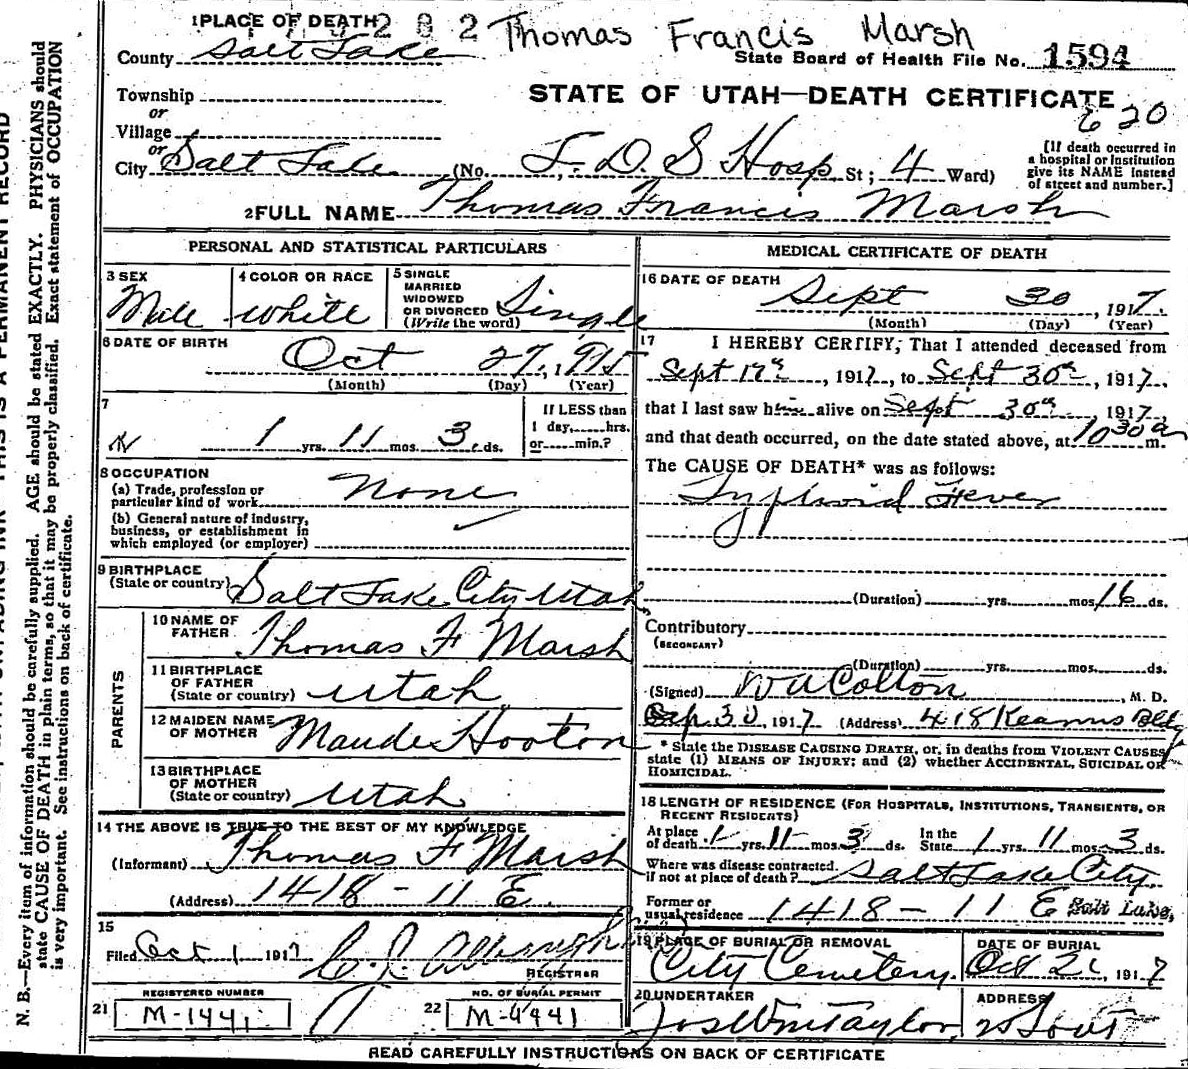 282 Thomas Francis Marsh
1 PLACE OF DEATH
County Salt Lake
State Board of Health File No. 1594
Township
or
Village
or
City Salt Lake (No. L. D. S Hosp St; 4 Ward)
STATE OF UTAH—DEATH CERTIFICATE
620
[If death occurred in
a hospital or institution
give its NAME instead
of street and number.]
2 FULL NAME Thomas Francis Marsh
PERSONAL AND STATISTICAL PARTICULARS
3 SEX Male
4 COLOR OR RACE white
5 SINGLE
MARRIED
WIDOWED
OR DIVORCED
(Write the word) Single
6 DATE OF BIRTH
Oct 27, 1915
(Month) (Day) (Year)
7
1 yrs. 11 mos. 3 ds.
If LESS than
1 day, hrs.
or min.?
8 OCCUPATION
(a) Trade, profession or
particular kind of work None
(b) General nature of industry,
business, or establishment in
which employed (or employer)
9 BIRTHPLACE
(State or country) Salt Lake City Utah
PARENTS
10 NAME OF
FATHER Thomas F Marsh
11 BIRTHPLACE
OF FATHER
(State or country) Utah
12 MAIDEN NAME
OF MOTHER Maude Hooton
13 BIRTHPLACE
OF MOTHER
(State or country) Utah
14 THE ABOVE IS TRUE TO THE BEST OF MY KNOWLEDGE
(Informant) Thomas F Marsh
(Address) 1418 - 11 E.
15
Filed Oct 1 1917
REGISTRAR
REGISTERED NUMBER
21 M-1441
NO. OF BURIAL PERMIT
22 M-4441
MEDICAL CERTIFICATE OF DEATH
16 DATE OF DEATH
Sept 30, 1917.
(Month) (Day) (Year)
17 I HEREBY CERTIFY, That I attended deceased from
Sept 17th, 1917, to Sept 30th, 1917.
that I last saw him alive on Sept 30th, 1917,
and that death occurred, on the date stated above, at 10 30 a m.
The CAUSE OF DEATH* was as follows:
Typhoid Fever
(Duration) yrs. mos. 16 ds.
Contributory
(SECONDARY)
(Duration) yrs. mos. ds.
(Signed) W A Colton, M. D.
Sep 30, 1917 (Address) 418 Kearns Bldg
* State the DISEASE CAUSING DEATH, or, in deaths from VIOLENT CAUSES,
state (1) MEANS OF INJURY; and (2) whether ACCIDENTAL, SUICIDAL OR
HOMICIDAL.
18 LENGTH OF RESIDENCE (FOR HOSPITALS, INSTITUTIONS, TRANSIENTS, OR
RECENT RESIDENTS)
At place
of death 1 yrs. 11 mos. 3 ds.
In the
State 1 yrs. 11 mos. 3 ds.
Where was disease contracted,
if not at place of death? Salt Lake City.
Former or
usual residence 1418 - 11 E Salt Lake,
19 PLACE OF BURIAL OR REMOVAL
City Cemetery
DATE OF BURIAL
Oct 2, 1917
20 UNDERTAKER
Jos Wm Taylor
ADDRESS
READ CAREFULLY INSTRUCTIONS ON BACK OF CERTIFICATE
THIS IS A PERMANENT RECORD
N. B.—Every item of information should be carefully supplied. AGE should be stated EXACTLY. PHYSICIANS should
state CAUSE OF DEATH in plain terms, so that it may be properly classified. Exact statement of OCCUPATION
is very important. See instructions on back of certificate.